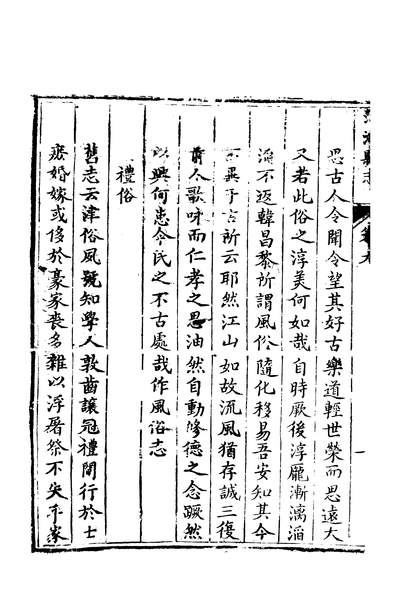 思古人令聞令望其好古樂道輕世榮而思遠大
又若此俗之淳美何如哉自時厥後淳龐漸漓滔
滔不返韓昌黎所謂風俗隨化移易吾安知其今
異于古所云耶然江山如故流風猶存誠三復
前人歌咏而仁孝之思油然自動修德之念蹶然
以興何患今民之不古處哉作風俗志
禮俗
舊志云津俗風號知學人敦齒讓冠禮間行於士
庶婚嫁或侈於豪家喪多雜以浮屠祭不失乎家